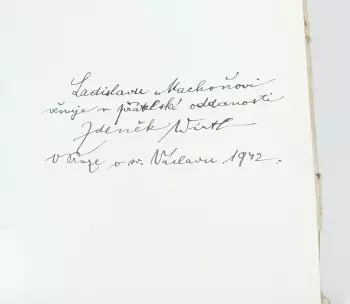 Ladislavu Machoňovi
věnuje v přátelské oddanosti
Zdeněk Wirth
V Praze o sv. Václavu 1942.